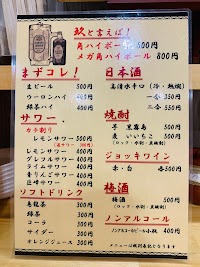 玖と言えば!
角ハイボール 500円
メガ角ハイボール 800円
まずコレ!
生ビール 500円
ウーロンハイ 400円
緑茶ハイ 400円
サワー
カチ割り
レモンサワー 500円
レモンサワー 400円
グレフルサワー 400円
ライムサワー 400円
梅干サワー 400円
りんごサワー 400円
巨峰サワー 400円
ソフトドリンク
烏龍茶 300円
緑茶 300円
コーラ 300円
サイダー 300円
オレンジジュース 300円
日本酒
高清水辛口(冷・熱燗)
一合 350円
二合 550円
焼酎
芋 黒霧島 500円
麦 いいちこ 500円
(ロック・水割・お湯割)
ジョッキワイン
赤・白 各500円
梅酒
梅酒 500円
(ロック・水割・お湯割)
ノンアルコール
ノンアルコールビール小瓶 400円
メニューは税別表記となります